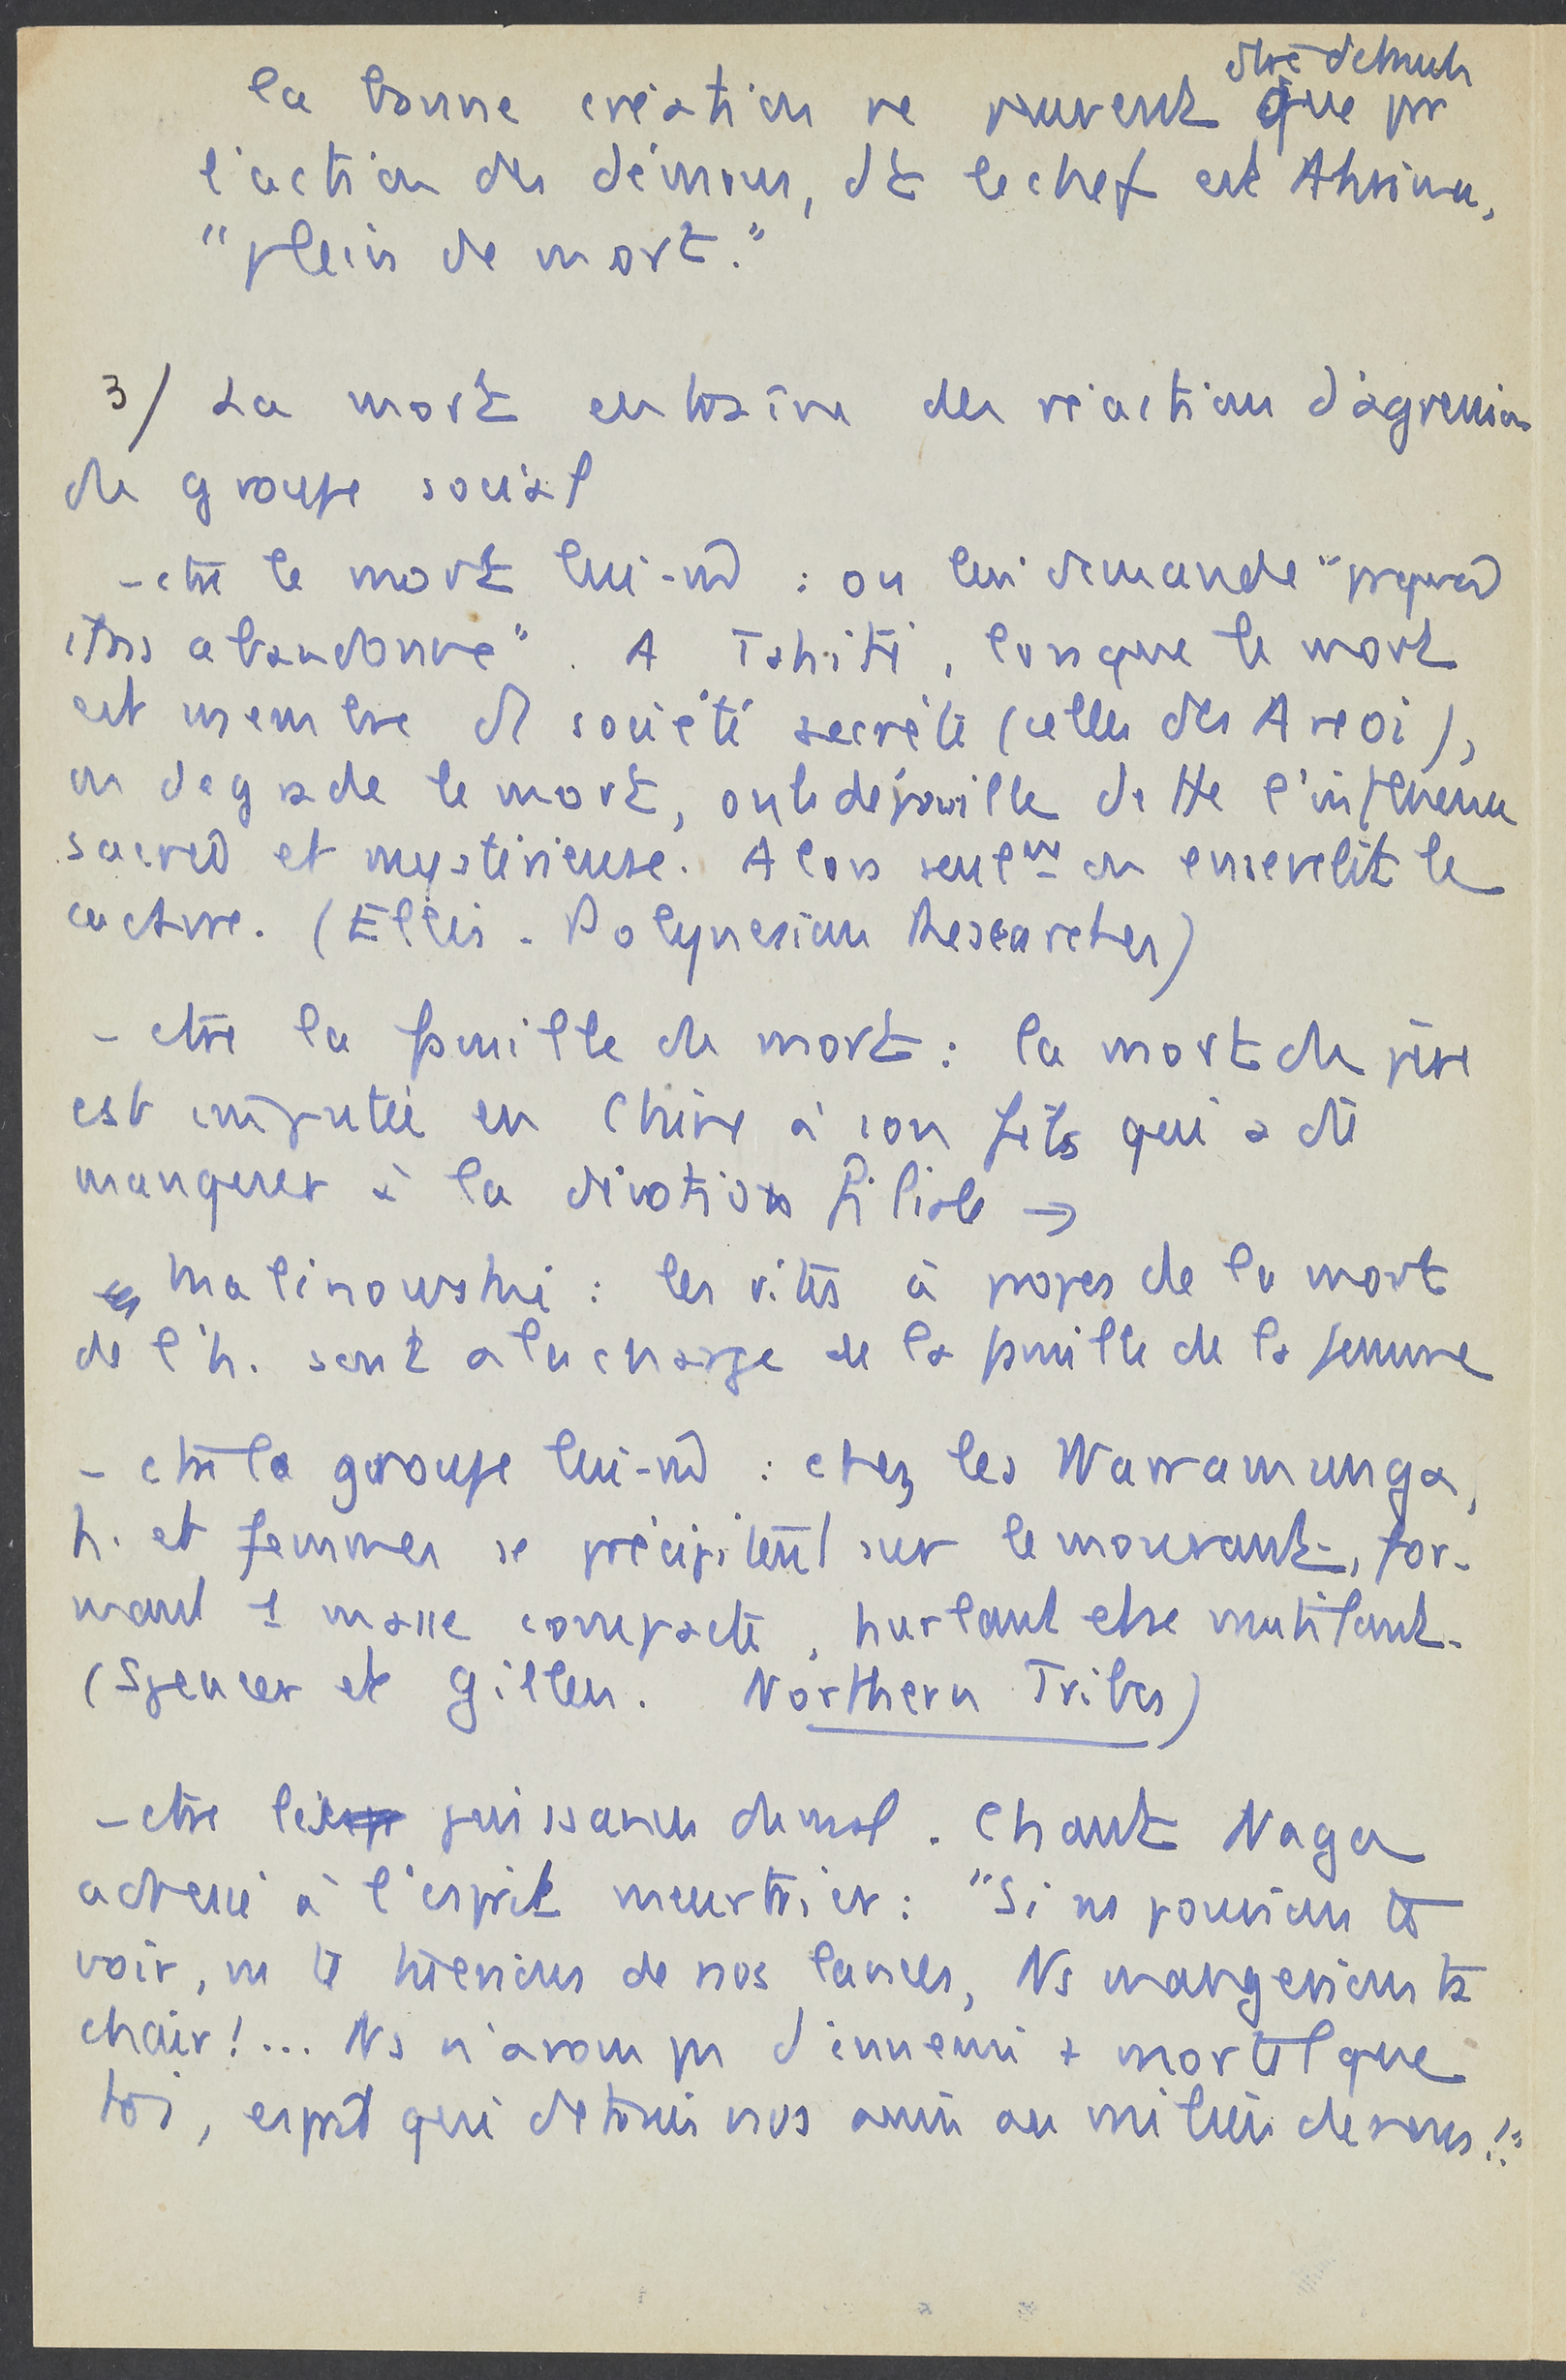 être détruits
la bonne création ne peuvent que pr
l'action des démons, dt le chef est Ahriman,
"plein de mort."
3/ La mort entraîne des réactions d'agression
du groupe social
- ctre le mort lui-m̂ : on lui demande "pquoi
abandonné". A Tahiti, lorsque le mort
est membre d' société secrète (celles des Areoi),
on dégrade le mort, on le dépouille de tte l'influence
sacrée et mystérieuse. Alors seulmt on ensevelit le
cadavre. (Ellis - Polynesian Researches)
- ctre la famille du mort : la mort du père
est imputée en Chine à son fils qui a dû
manquer à la dévotion filiale →
Malinowski : les rites à propos de la mort
de l'h. sont à la charge de la famille de la femme
- ctre le groupe lui-m̂ : chez les Warramunga,
h. et femmes se précipitent sur le mourant, for-
mant 1 masse compacte, hurlant et se mutilant.
(Spencer et Gillen. Northern Tribes)
- ctre les puissances du mal. Chant Naga
adressé à l'esprit meurtrier : "Si ns pouvions te
voir, ns te tuerions de nos lances, Ns mangerions ta
chair!... Ns n'avons pas d'ennemi + mortel que
toi, esprit qui détruis nos amis au milieu de nous!"